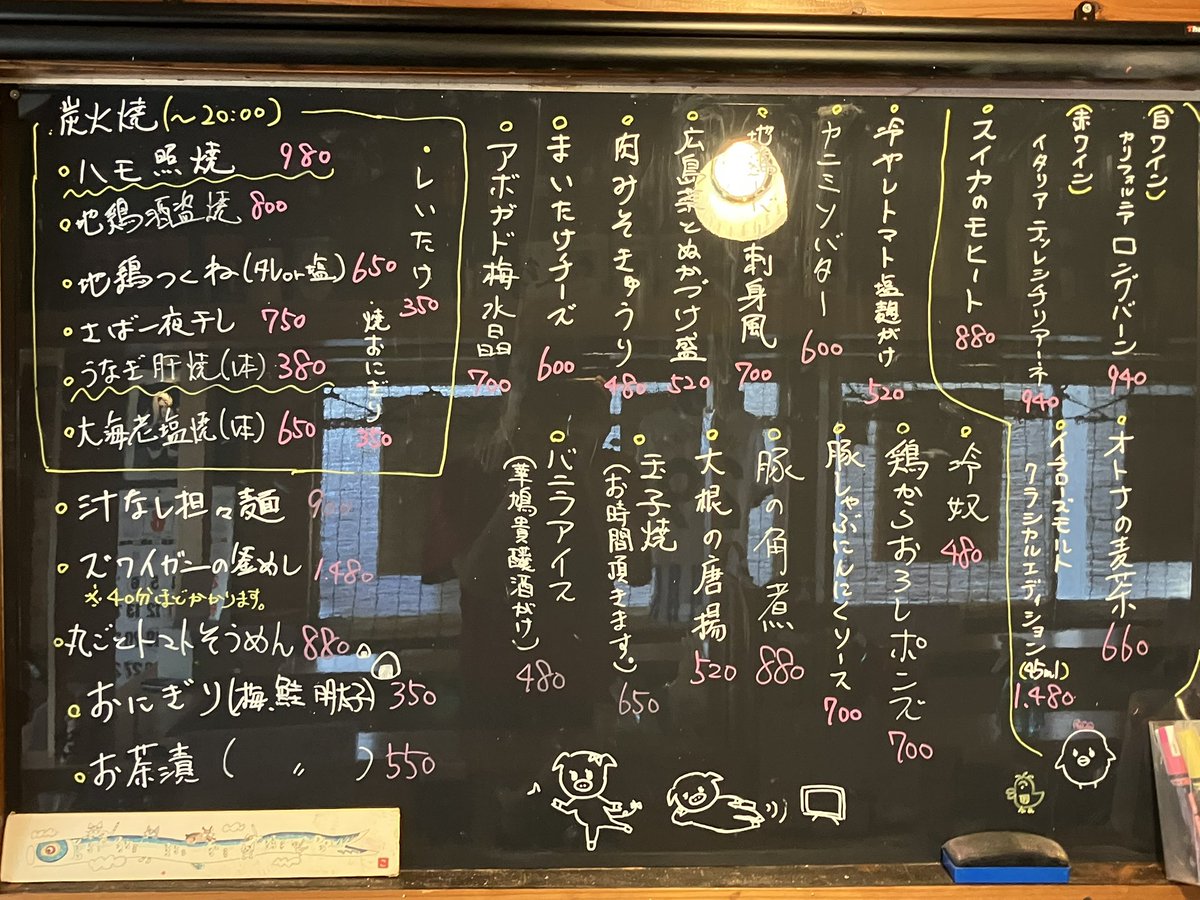 炭火焼(〜20:00)
・ハモ照焼 980
・地鶏酒盗焼 800
・地鶏つくね(タレor塩) 650
・さば一夜干し 750
・うなぎ肝焼(1本) 380
・大海老塩焼(1本) 650
・しいたけ 350
焼おにぎり 380
・汁なし担々麺
・ズワイガニの釜めし 1.480
※40分ほどかかります。
・丸ごとトマトそうめん 880
・おにぎり(梅、鮭 明太子) 350
・お茶漬 ( 〃 ) 550
(白ワイン)
カリフォルニア ロングバーン 940
(赤ワイン)
イタリア テッレシチリアーネ 940
・スイカのモヒート 880
・オトナの麦茶 660
・イチローズモルト
クラシカルエディション(45ml) 1.480
・冷やしトマト塩麹がけ 520
・ヤミツンバター 600
刺身風 700
・広島菜とぬかづけ盛 520
・肉みそきゅうり 480
・まいたけチーズ 600
・アボガド梅水晶 700
・冷奴 480
・鶏からおろしポンズ 700
・豚しゃぶにんにくソース 700
・豚の角煮 880
・大根の唐揚 520
・玉子焼
(お時間頂きます。) 650
・バニラアイス
(華鳩貴醸酒がけ) 480